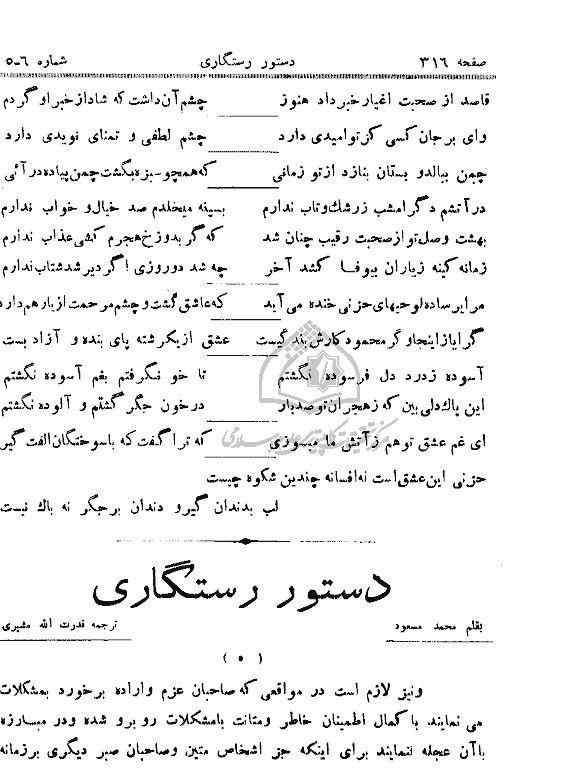 صفحه ۳۱۶ دستور رستگاری شماره ۶-۵
قاصد از صحبت اغیار خبر داد هنوز چشم آن داشت که شاد از خبر او گردم
وای بر جان کسی کز تو امیدی دارد چشم لطفی و تمنای نویدی دارد
چمن ببالد و بستان بنازد از تو زمانی که همچو سبزه بگشت چمن پیاده در آئی
در آتشم دگر امشب ز رشك و تاب ندارم بسینه میخلدم صد خیال و خواب ندارم
بهشت وصل تو از صحبت رقیب چنان شد که گر بدوزخ هجرم کشی عذاب ندارم
زمانه کینه ز یاران بیوفا کشد آخر چه شد دو روزی اگر دیر شد شتاب ندارم
مرا بر ساده لوحیهای حزنی خنده می آید که عاشق گشت و چشم مرحمت از یار هم دارد
گر ایاز اینجا و گر محمود کارش بندگیست عشق از یکرشته پای بنده و آزاد بست
آسوده ز درد دل فرسوده نگشتم تا خو نگرفتم بغم آسوده نگشتم
این پاك دلی بین که ز هجران تو صد بار در خون جگر گشتم و آلوده نگشتم
ای غم عشق تو هم ز آتش ما میسوزی که ترا گفت که با سوختگان الفت گیر
حزنی این عشق است نه افسانه چندین شکوه چیست
لب بدندان گیر و دندان بر جگر نه باك نیست
مرکز تحقیقات کامپیوتری علوم اسلامی
دستور رستگاری
بقلم محمد مسعود ترجمه قدرت الله مشیری
( ۵ )
ونیز لازم است در مواقعی که صاحبان عزم و اراده برخورد بمشکلات
می نمایند با کمال اطمینان خاطر ومتانت بامشکلات روبرو شده ودر مبارزه
باآن عجله ننمایند برای اینکه جز اشخاص متین وصاحبان صبر دیگری برزمانه